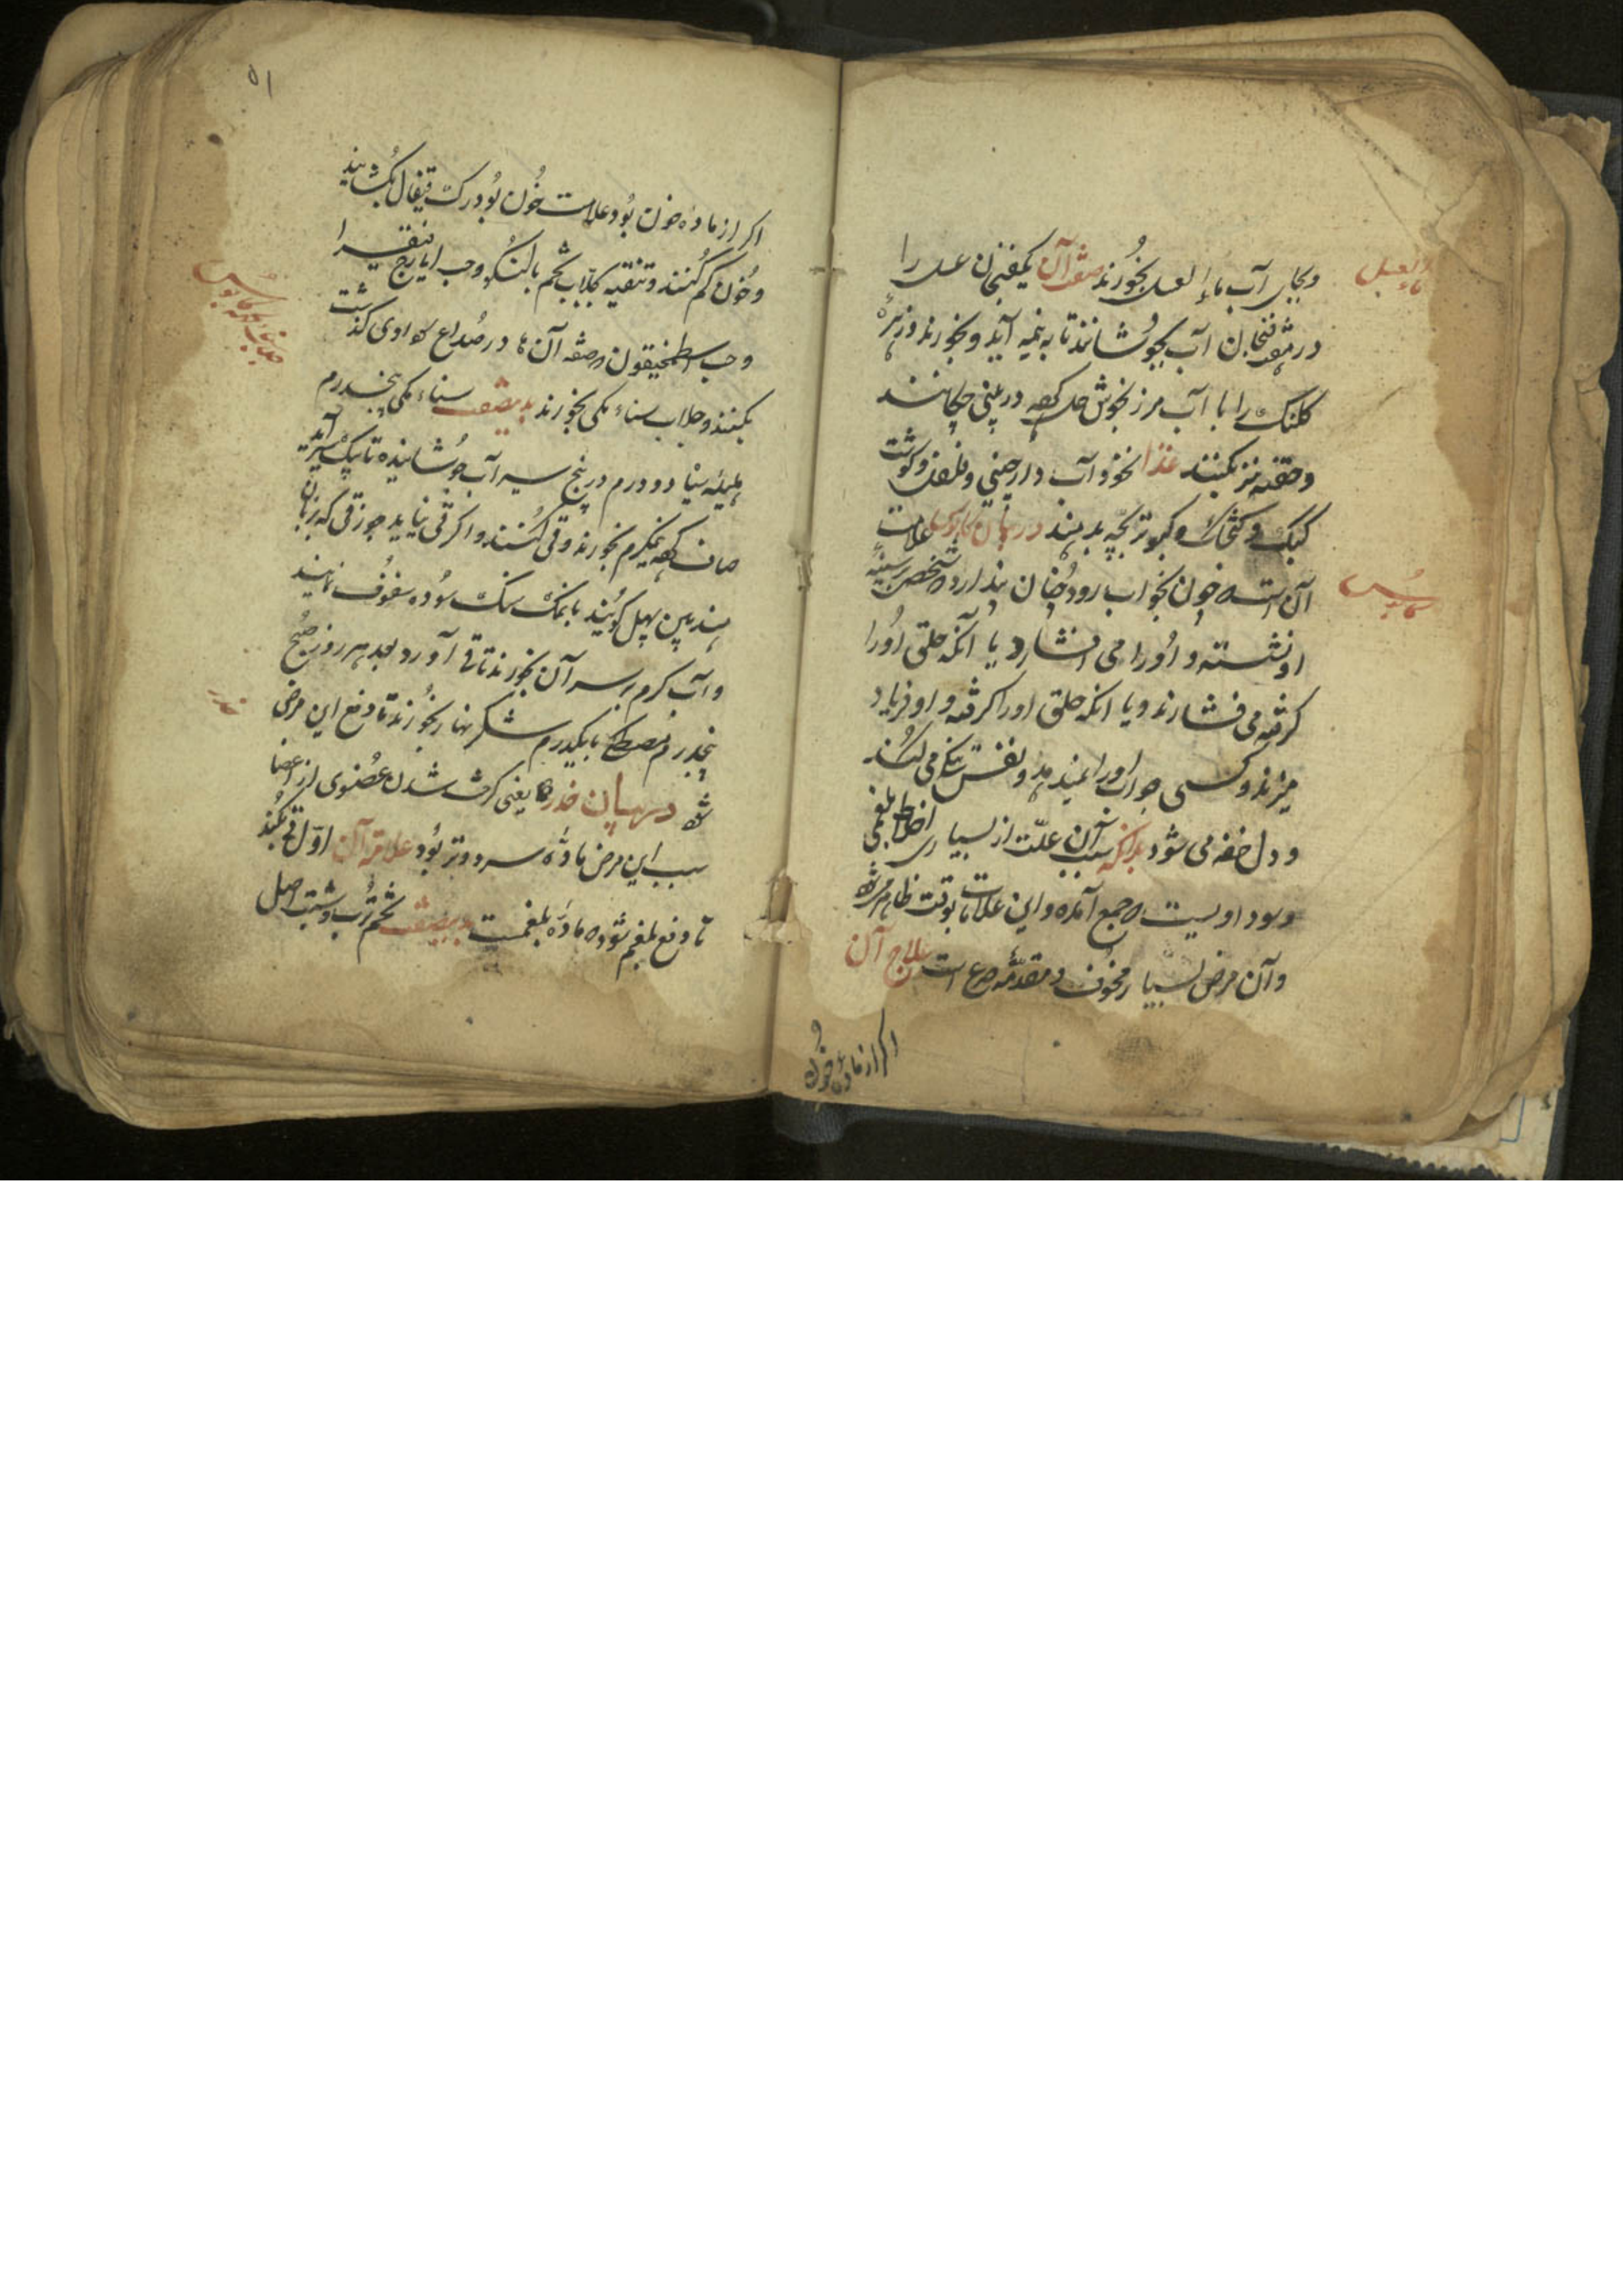 ماء العسل
وبجای آب ماء العسل بخورند صفة آن یکفنجان عسل را
در هشت فنجان آب بجوشانند تا به نیمه آید و بخورند و زهرهٔ
کلنک را با آب مرزنجوش حل کرده در بینی چکانند
و حقنه نیز بکنند غذا نخود آب دارچینی و فلفل و کوشت
کبک و کنجشک و کبوتر بچه بدهند در بیان کابوس علامت
کابوس
آن است که چون بخواب رود چنان پندارد که شخصی بر سینه
او نشسته و او را می افشارد یا آنکه حلق او را
کرفته می فشارند و یا انکه حلق او را کرفته و او فریاد
میزند و کسی جواب او را نمیدهد و نفس تنکی می کند
و دل خفه می شود بدانکه سبب آن علت از بسیاری اخلاط بلغمی
و سوداویست که جمع آمده و این علامات بوقت ظاهر میشود
و آن مرض بسیار مخوف و مقدمه صرع است علاج آن
اکر از ماده خون
۵۱
اکر از ماده خون بود علامت خون بود رک قیفال بکشایند
و خون کم کنند و تنقیه بجلاب تخم بالنکو و حب ایارج فیقرا
و حب اسطمخیقون که صفه آن ها در صداع سوداوی کذشت
بکنند و جلاب سناء مکی بخورند بدینصفت سناء مکی پنجدرم
هلیله سیاه دو درم در پنج سیر آب جوشانیده تا بیک سیر آید
صاف کرده نیمکرم بخورند و قی کنند و اکر قی نیاید جوز قی که بزبان
هند مین پهل کویند با نمک سنک سوده سفوف نمایند
و آب کرم بر سر آن بخورند تا قی آورد بعد هر روز صبح
پنجدرم مصطکی با یکدرم شکر نهار بخورند تا دفع این مرض
شود در بیان خدر یعنی کرخت شدن عضوی از اعضا
خدر
سبب این مرض ماده سرد و تر بود علامة آن اول قی بکند
تا دفع بلغم شود که ماده بلغمست بدینصفت تخم ترب و شبت و اصل